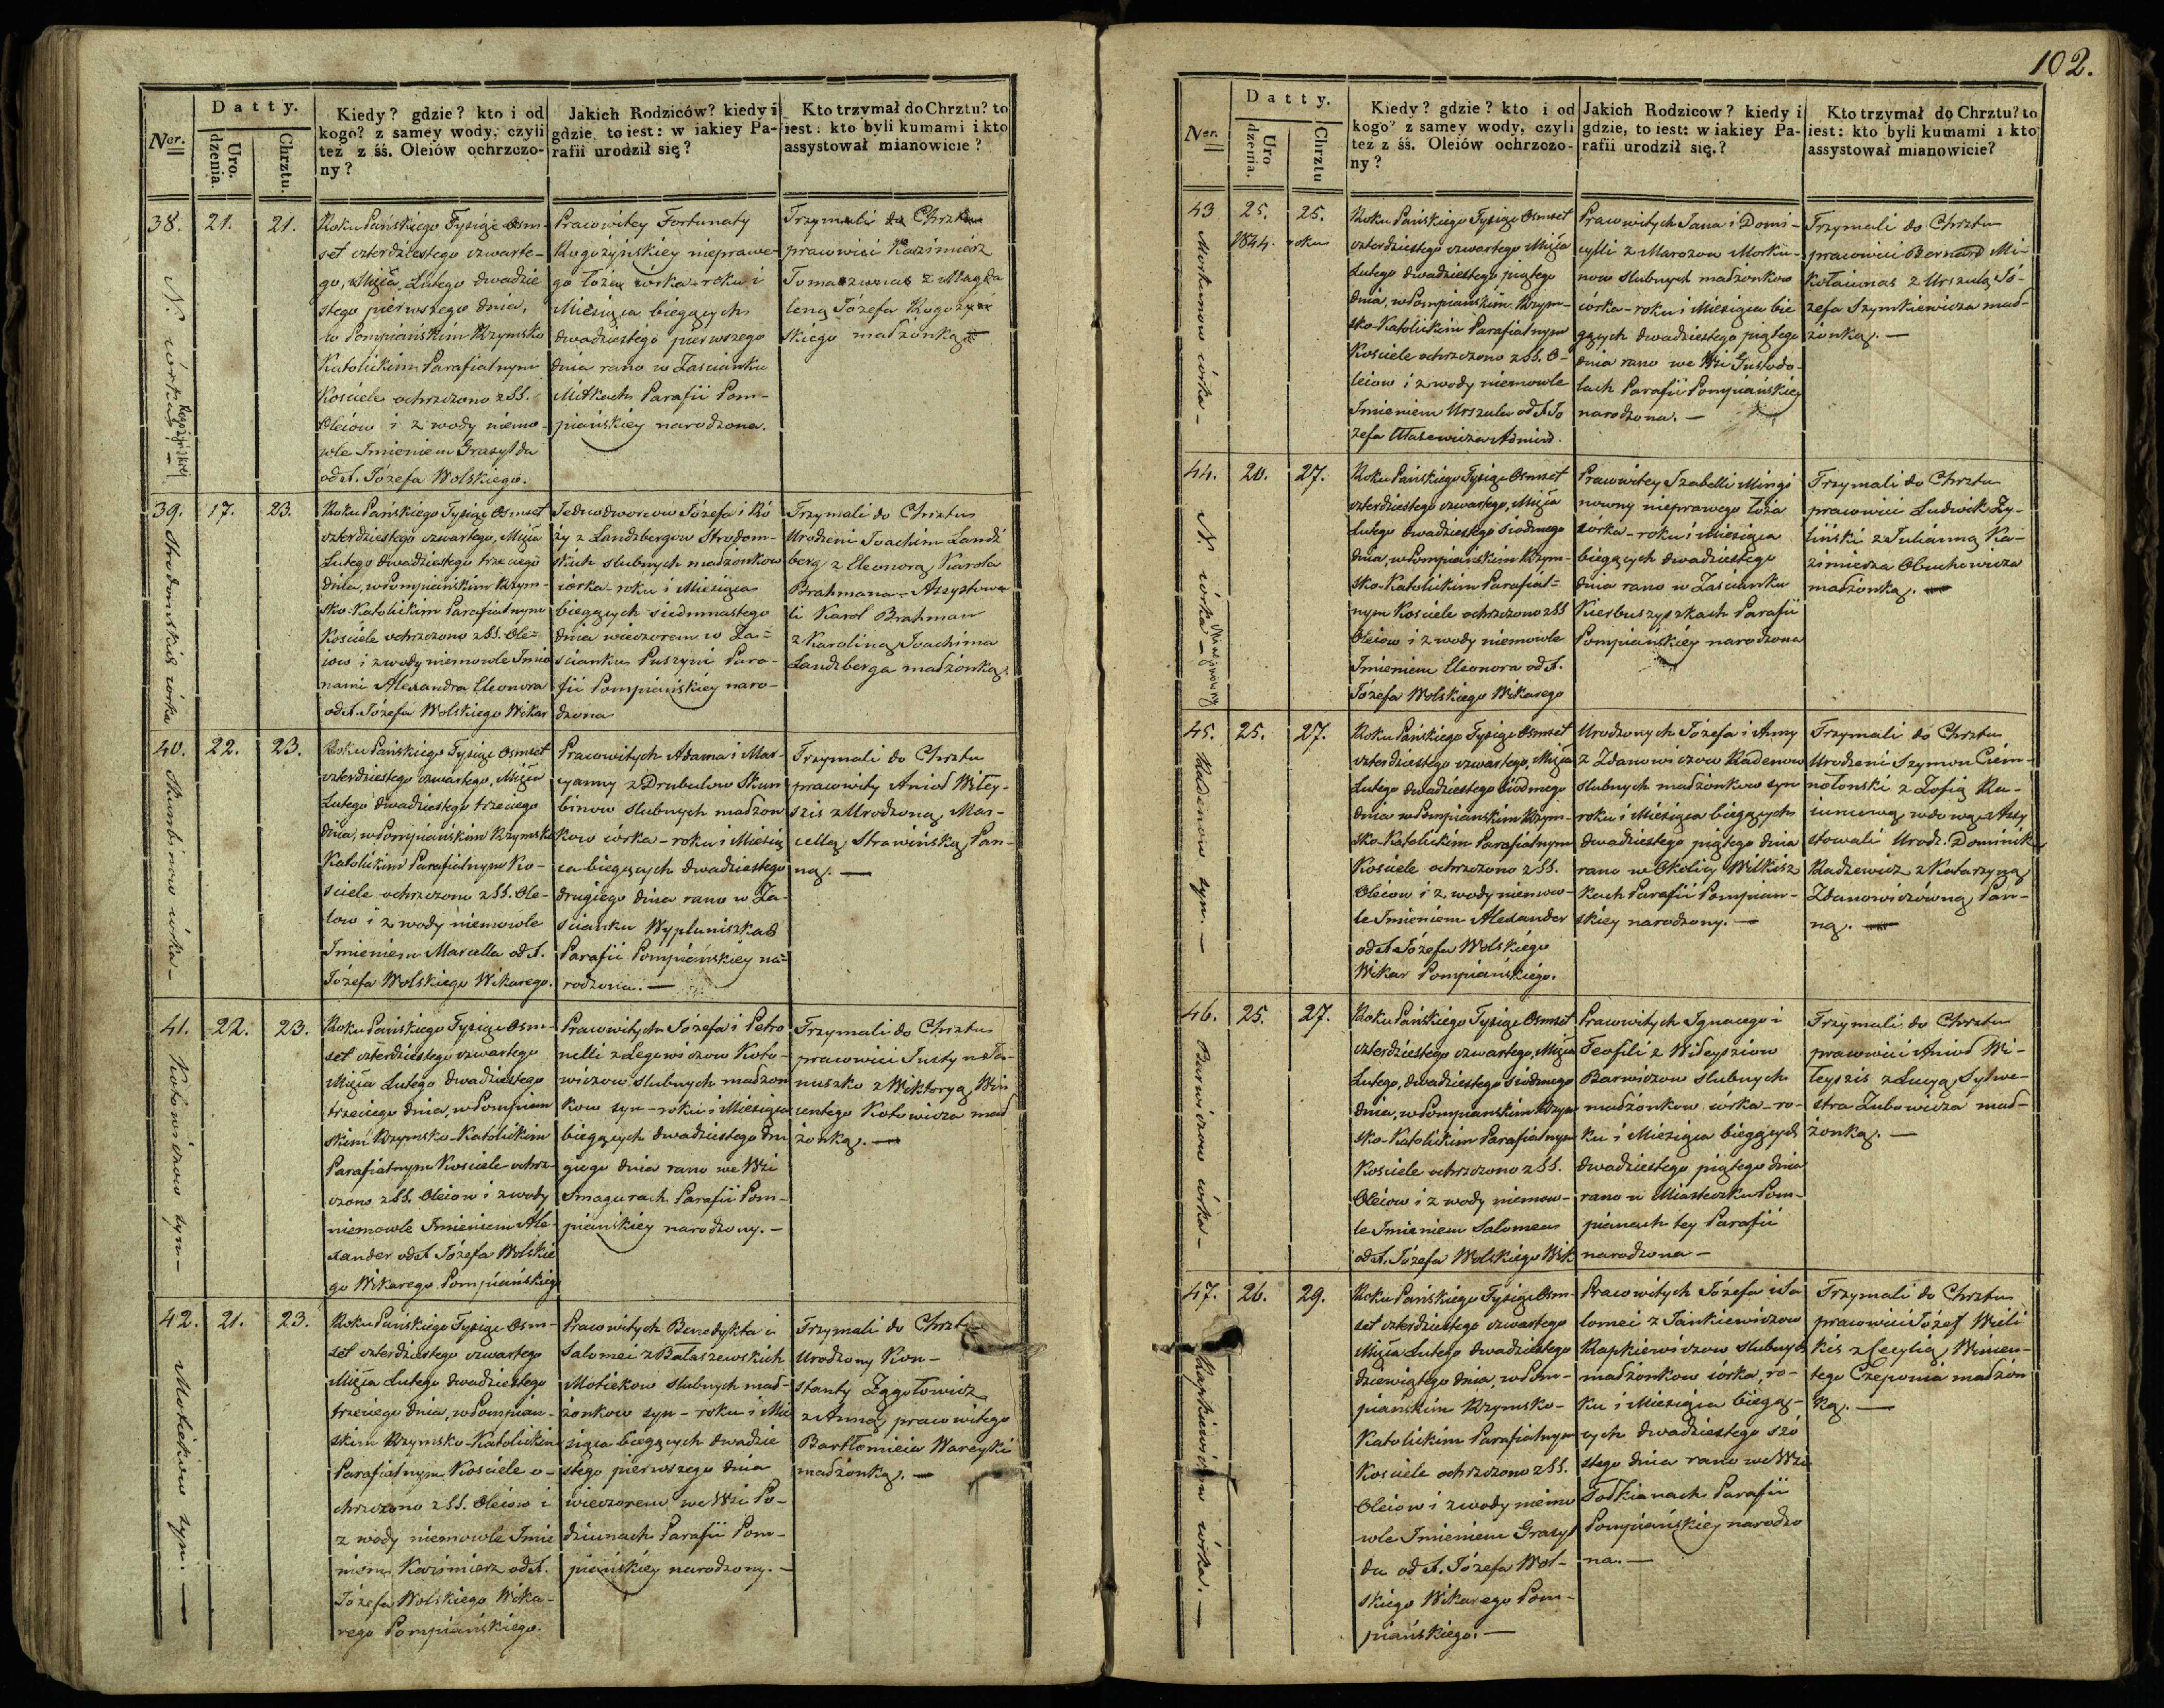 102.
Datty.
Ner.
Uro.
dzenia.
Chrztu.
Kiedy? gdzie? kto i od
kogo? z samey wody, czyli
tez z śś. Oleiów ochrzczo-
ny?
Jakich Rodziców? kiedy i
gdzie, to iest: w iakiey Pa-
rafii urodził się?
Kto trzymał do Chrztu? to
iest: kto byli kumami i kto
assystował mianowicie?
38. 21. 21.
N. córka
Rogożyńskiey
Roku Pańskiego Tysiąc Osm-
set czterdziestego czwarte-
go, Mięca Lutego dwadzie
stego pierwszego dnia,
w Pompiańskim Rzymsko
Katolickim Parafialnym
Kościele ochrzczono z SS.
Oleiów i z wody niemo-
wle Imieniem Grazylda
od X. Józefa Wolskiego.
Pracowitey Fortunaty
Rogożyńskiey nieprawe-
go łoża córka - roku i
Miesiąca bieżących
dwadziestego pierwszego
dnia rano w Zaścianku
Mitkach Parafii Pom-
piańskiey narodzona.
Trzymali do Chrztu
pracowici Kazimierz
Tomaszunas z Magda
leną Józefa Rogożyń
skiego małżonką
39. 17. 23.
Strodomskich córka
Roku Pańskiego Tysiąc Osmset
czterdziestego czwartego, Mięca
Lutego dwadziestego trzeciego
dnia, w Pompiańskim Rzym-
sko-Katolickim Parafialnym
Kościele ochrzczono z SS. Ole-
iow i z wody niemowle Imio
nami Alexandra Eleonora
od X. Józefa Wolskiego Wikar
Jednodworcow Józefa i Ró
ży z Landzbergow Strodom-
skich slubnych małżonkow
córka - roku i Miesiąca
bieżących siedmnastego
dnia wieczorem w Za-
ścianku Puszyni Para-
fii Pompiańskiey naro-
dzona
Trzymali do Chrztu
Urodzeni Joachim Landz
berg z Eleonorą Karola
Brahmana - Assystowa
li Karol Brahman
z Karoliną Joachima
Landzberga małżonką.
40. 22. 23.
Skumbinow córka -
Roku Pańskiego Tysiąc Osmset
czterdziestego czwartego, Mięca
Lutego dwadziestego trzeciego
dnia, w Pompiańskim Rzymsko
Katolickim Parafialnym Ko-
ściele ochrzczono z SS. Ole-
iow i z wody niemowle
Imieniem Marcella od X.
Józefa Wolskiego Wikarego.
Pracowitych Adama i Mar-
cyanny z Drubulow Skum
binow slubnych małżon
kow córka - roku i Miesią
ca bieżących dwadziestego
drugiego dnia rano w Za-
ścianku Wypluniszkach
Parafii Pompiańskiey na-
rodzona. -
Trzymali do Chrztu
pracowity Anioł Wiley-
szis z Urodzoną Mar-
cellą Strawińską Pan-
ną. -
41. 22. 23.
Kotowiczow syn -
Roku Pańskiego Tysiąc Osm-
set czterdziestego czwartego
Mięca Lutego dwadziestego
trzeciego dnia, w Pompiań
skim Rzymsko-Katolickim
Parafialnym Kosciele ochrz-
czono z SS. Oleiow i z wody
niemowle Imieniem Ale-
xander od X Józefa Wolskie
go Wikarego Pompiańskiego
Pracowitych Józefa i Petro
nelli z Legowiczow Koto-
wiczow slubnych małżon
kow syn - roku i Miesiąca
bieżących dwadziestego dru
giego dnia rano we Wsi
Smagurach Parafii Pom-
piańskiey narodzony. -
Trzymali do Chrztu
pracowici Justyn Ja-
nuszko z Wiktoryą Win
centego Kotowicza mał
żonką. -
42. 21. 23.
Motiekow syn. -
Roku Pańskiego Tysiąc Osm-
set czterdziestego czwartego
Mięca Lutego dwadziestego
trzeciego dnia, w Pompiań-
skim Rzymsko-Katolickim
Parafialnym Kosciele o-
chrzczono z SS. Oleiow i
z wody niemowle Imie
niem Kazimierz od X.
Józefa Wolskiego Wika-
rego Pompiańskiego.
Pracowitych Benedykta i
Salomei z Bałaszewskich
Motiekow slubnych mał-
żonkow syn - roku i Mie
siąca bieżących dwadzie
stego pierwszego dnia
wieczorem we Wsi Po-
dziunach Parafii Pom-
piańskiey narodzony. -
Trzymali do Chrztu
Urodzony Kon-
stanty Zągołowicz
z Anną pracowitego
Bartłomieia Wareyki
małżonką. -
Datty.
Ner.
Uro
dzenia.
Chrztu
Kiedy? gdzie? kto i od
kogo? z samey wody, czyli
tez z śś. Oleiów ochrzczo-
ny?
Jakich Rodzicow? kiedy i
gdzie, to iest: w iakiey Pa-
rafii urodził się.?
Kto trzymał do Chrztu? to
iest: kto byli kumami i kto
assystował mianowicie?
43 25. 25.
1844. roku
Morkunow córka -
Roku Pańskiego Tysiąc Osmset
czterdziestego czwartego Mięca
Lutego dwadziestego piątego
dnia, w Pompiańskim Rzym-
sko-Katolickim Parafialnym
Kosciele ochrzczono z SS. O-
leiow i z wody niemowle
Imieniem Urszula od X Jo
zefa Administ.
Pracowitych Jana i Domi-
cylli z Marozow Morku-
now slubnych małżonkow
córka - roku i Miesiąca bie
żących dwadziestego piątego
dnia rano we Wsi Gustodo-
lach Parafii Pompiańskiey
narodzona. -
Trzymali do Chrztu
pracowici Bernard Mi-
kołaiunas z Urszulą Jó-
zefa Szymkiewicza mał-
żonką. -
44. 20. 27.
N. córka -
Minginowny
Roku Pańskiego Tysiąc Osmset
czterdziestego czwartego, Mięca
Lutego dwadziestego siodmego
dnia, w Pompiańskim Rzym-
sko-Katolickim Parafial-
nym Kosciele ochrzczono z SS
Oleiow i z wody niemowle
Imieniem Eleonora od X.
Józefa Wolskiego Wikarego
Pracowitey Izabelli Mingi
nowny nieprawego łoża
corka - roku i Miesiąca
bieżących dwadziestego
dnia rano w Zaścianku
Kierbuszyszkach Parafii
Pompiańskiey narodzona
Trzymali do Chrztu
pracowici Ludwik Zy-
liński z Julianną Ka-
zimierza Obuchowicza
małżonką. -
45. 25. 27.
Radenow syn. -
Roku Pańskiego Tysiąc Osmset
czterdziestego czwartego, Mięca
Lutego dwadziestego siodmego
dnia w Pompiańskim Rzym-
sko-Katolickim Parafialnym
Kosciele ochrzczono z SS.
Oleiow i z wody niemow-
le Imieniem Alexander
od X Józefa Wolskiego
Wikar Pompiańskiego.
Urodzonych Józefa i Anny
z Zdanowiczow Radenow
slubnych małżonkow syn
roku i Miesiąca bieżących
dwadziestego piątego dnia
rano w Okolicy Wilkisz
kach Parafii Pompian-
skiey narodzony. -
Trzymali do Chrztu
Urodzeni Szymon Ciem-
nołonski z Zofią Ra-
iuncową wdową Assy
stowali Urodz. Dominik
Radzewicz z Katarzyną
Zdanowiczówną Pan-
ną. -
46. 25. 27.
Barwiczow córka -
Roku Pańskiego Tysiąc Osmset
czterdziestego czwartego, Mięca
Lutego, dwadziestego siodmego
dnia, w Pompianskim Rzym
sko-Katolickim Parafialnym
Kosciele ochrzczono z SS.
Oleiow i z wody niemow-
le Imieniem Salomea
od X. Józefa Wolskiego Wik
Pracowitych Ignacego i
Teofili z Wileysziow
Barwiczow slubnych
małżonkow córka - ro-
ku i Miesiąca bieżących
dwadziestego piątego dnia
rano w Miasteczku Pom-
pianach tey Parafii
narodzona -
Trzymali do Chrztu
pracowici Anioł Wi-
leyszis z Łucyą Sylwe-
stra Zubowicza mał-
żonką. -
47. 26. 29.
Rapkiewiczow córka. -
Roku Pańskiego Tysiąc Osm-
set czterdziestego czwartego
Mięca Lutego dwadziestego
dziewiątego dnia, w Pom-
piańskim Rzymsko-
Katolickim Parafialnym
Kosciele ochrzczono z SS.
Oleiow i z wody niemo
wle Imieniem Grazyl
da od X. Józefa Wol-
skiego Wikarego Pom-
piańskiego. -
Pracowitych Józefa i Sa
lomei z Jankiewiczow
Rapkiewiczow slubnych
małżonkow córka, ro-
ku i Miesiąca bieżą-
cych dwadziestego szó
stego dnia rano we Wsi
Tołkianach Parafii
Pompiańskiey narodzo
na. -
Trzymali do Chrztu
pracowici Józef Wieli
kis z Cecylią Wincen-
tego Czeponia małżon
ką. -